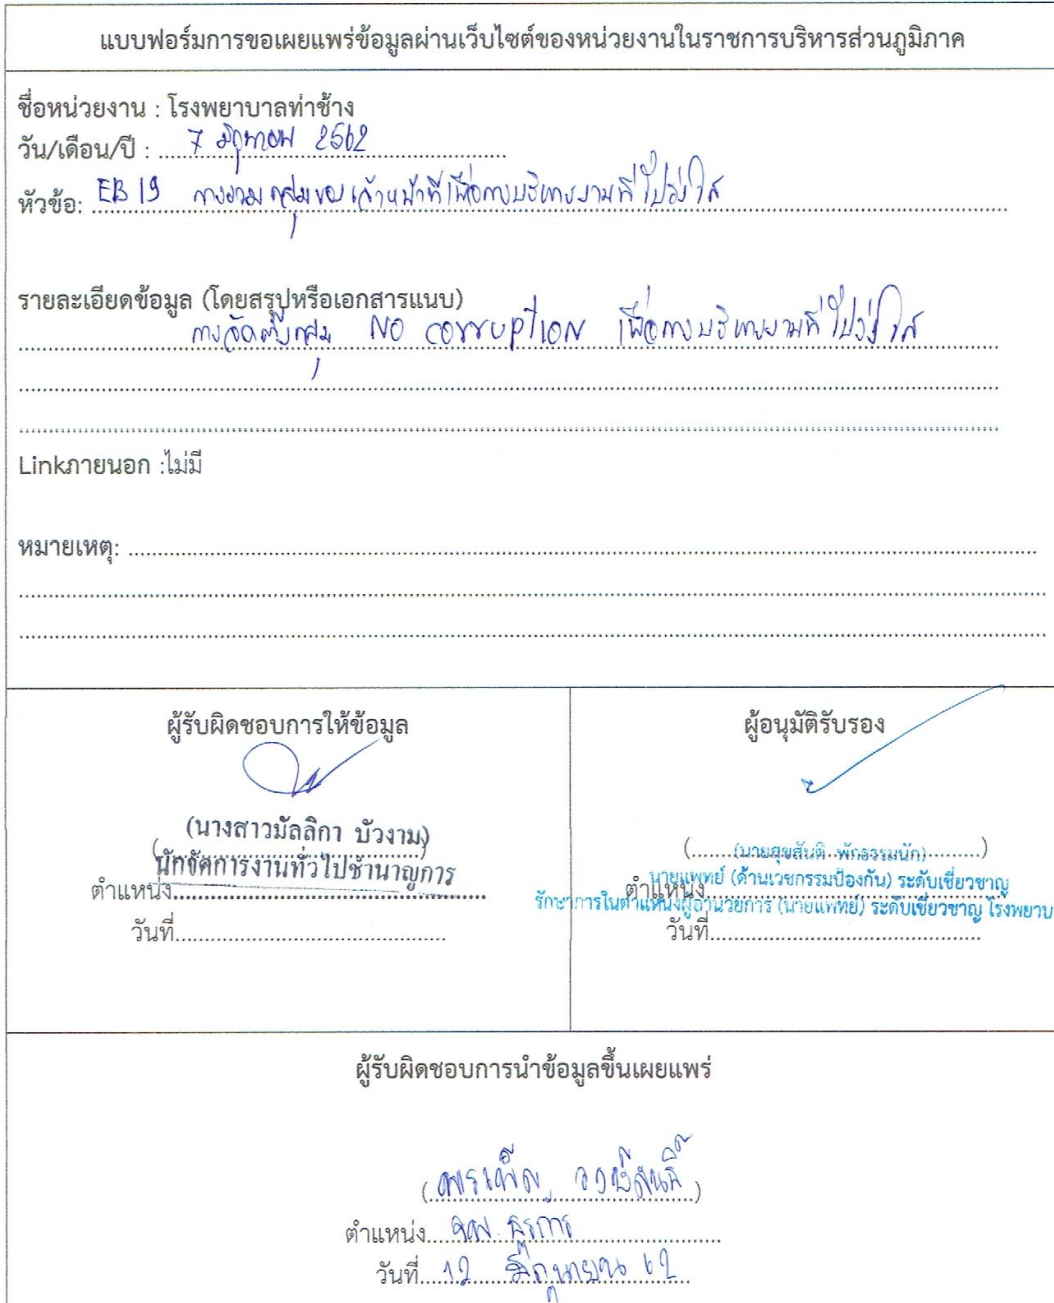 แบบฟอร์มการขอเผยแพร่ข้อมูลผ่านเว็บไซต์ของหน่วยงานในราชการบริหารส่วนภูมิภาค
ชื่อหน่วยงาน : โรงพยาบาลท่าช้าง
วัน/เดือน/ปี : 7 มิถุนายน 2562
หัวข้อ: EB 19 การรวมกลุ่มของเจ้าหน้าที่เพื่อการบริหารงานที่โปร่งใส
รายละเอียดข้อมูล (โดยสรุปหรือเอกสารแนบ)
การจัดตั้งกลุ่ม NO corruption เพื่อการบริหารงานที่โปร่งใส
Linkภายนอก :ไม่มี
หมายเหตุ:
ผู้รับผิดชอบการให้ข้อมูล
(นางสาวมัลลิกา บัวงาม)
นักจัดการงานทั่วไปชำนาญการ
ตำแหน่ง
วันที่
ผู้อนุมัติรับรอง
(นายสุขสันติ พักธรรมนัก)
นายแพทย์ (ด้านเวชกรรมป้องกัน) ระดับเชี่ยวชาญ
ตำแหน่ง
รักษาการในตำแหน่งผู้อำนวยการ (นายแพทย์) ระดับเชี่ยวชาญ โรงพยาบ
วันที่
ผู้รับผิดชอบการนำข้อมูลขึ้นเผยแพร่
(พรเพ็ญ)
ตำแหน่ง จพ. ธุรการ
วันที่ 12 มิถุนายน 62